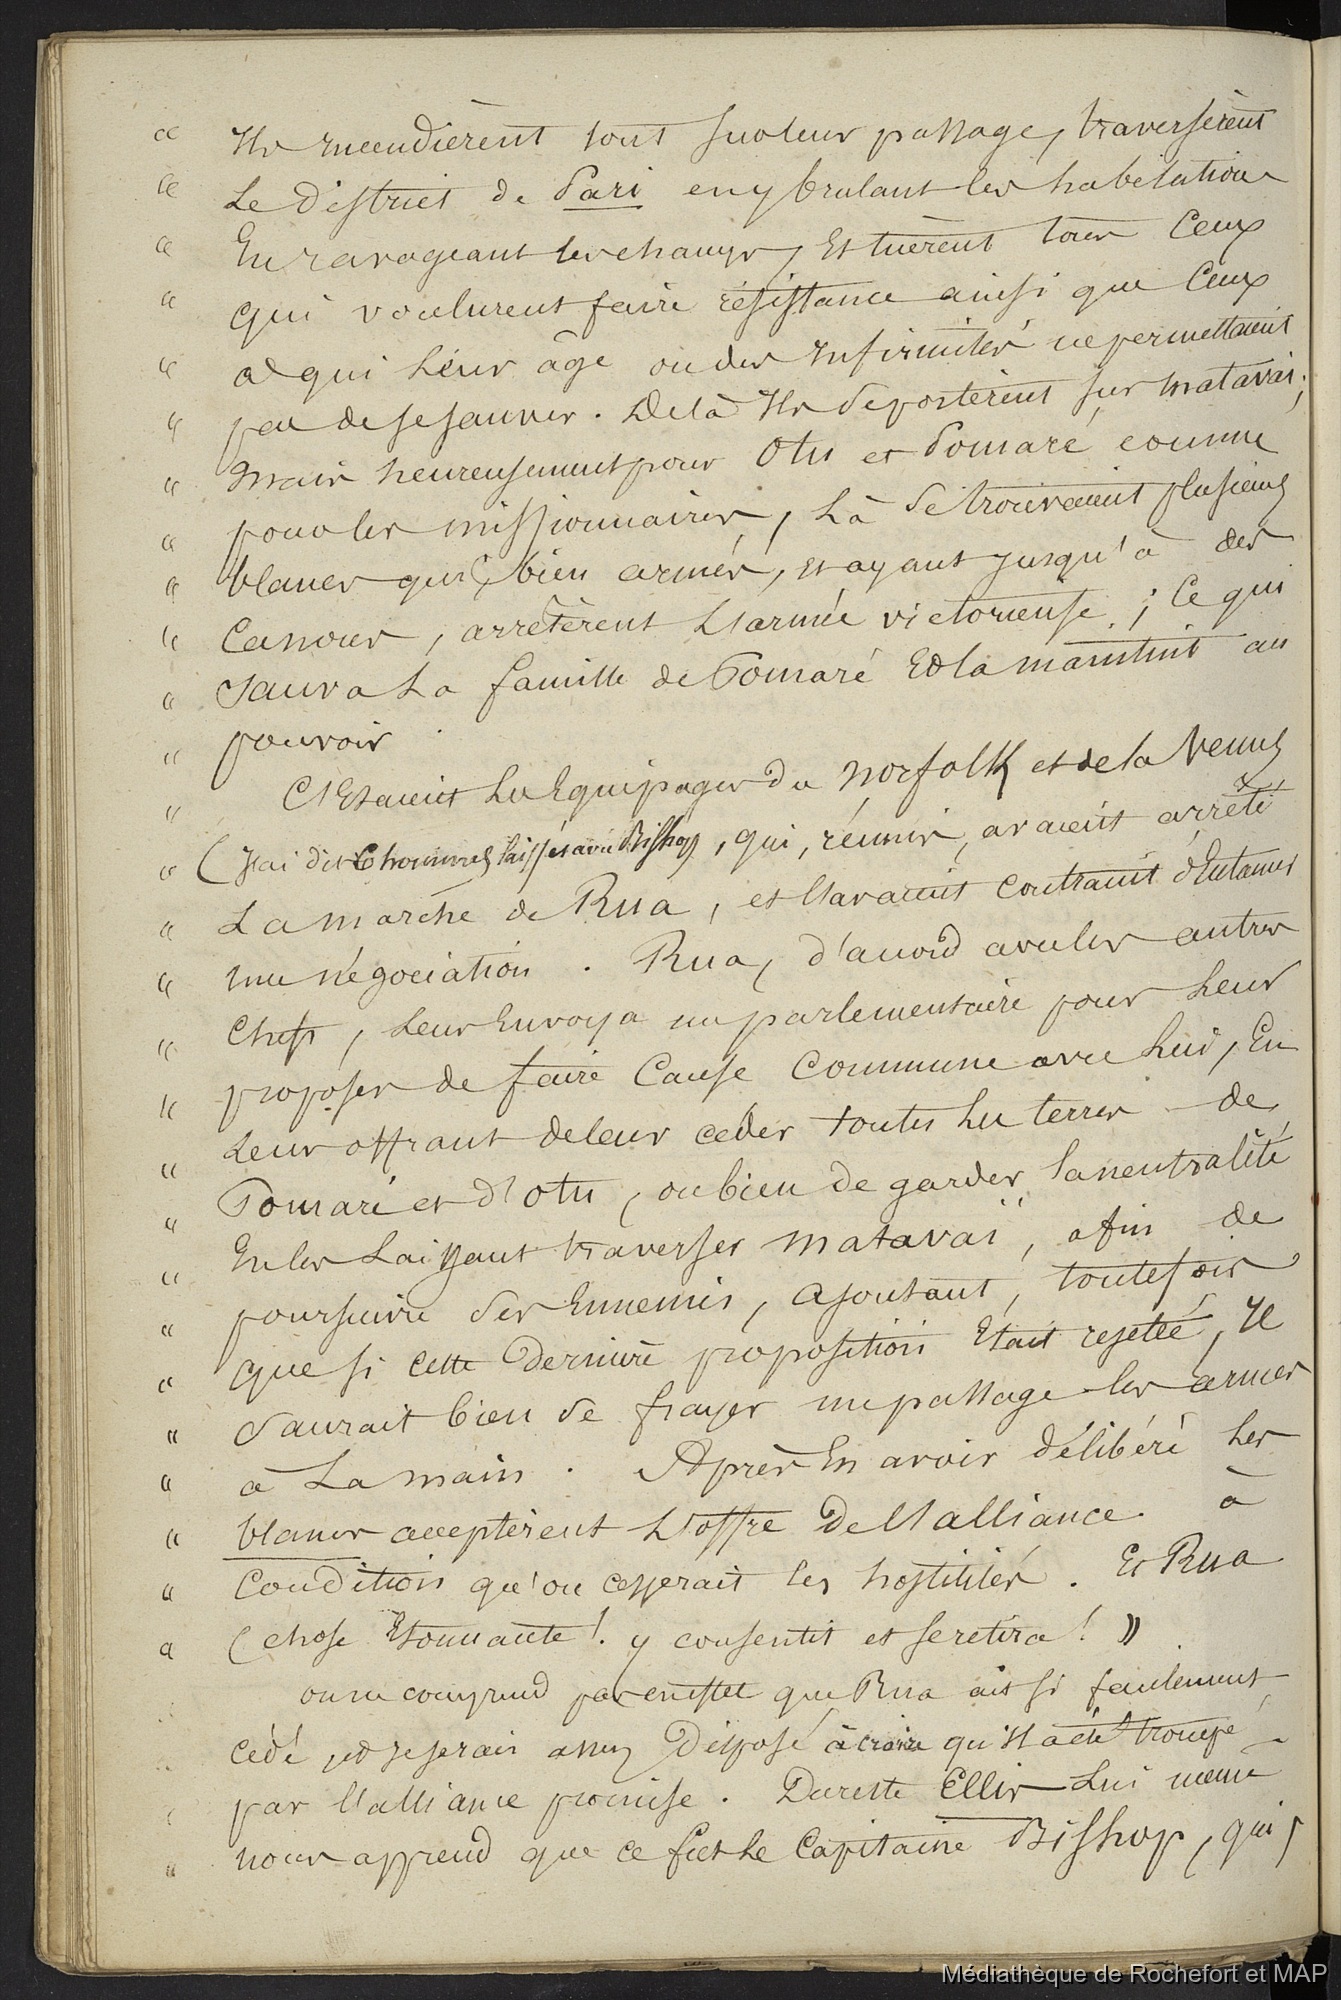 « Ils incendièrent tout sur leur passage, traversèrent
« Le district de Pari en y brulant les habitations
« En ravageant les champs, Et tuèrent tous Ceux
« qui voulurent faire résistance ainsi que Ceux
« à qui Leur âge ou des Infirmités ne permettaient
« pas de se sauver. De là Ils se portèrent sur Matavaï;
« Mais heureusement pour Otu et Pomaré, comme
« pour les missionnaires, Là se trouvaient plusieurs
« blancs qui, bien armés, et ayant jusqu'à des
« Canons, arrêtèrent L'armée victorieuse; Ce qui
« Sauva La famille de Pomaré Et la maintint au
« pouvoir.
« C'Etaient Les Equipages du Norfolk et de la Venus
« (J'ai dit 6 hommes laissés avec Bishop, qui, réunis, avaient arrêté
« La marche de Rua, et l'avaient contraint d'Entamer
« une négociation. Rua, d'accord avec les autres
« Chefs, Leur Envoya un parlementaire pour Leur
« proposer de faire Cause Commune avec Lui, En
« Leur offrant de leur céder toutes Les terres de
« Pomaré et d'Otu, ou bien de garder la neutralité
« En les Laissant traverser Matavaï, afin de
« poursuivre Ses Ennemis, Ajoutant, toutefois
« que si cette Dernière proposition Etait rejetée, Il
« Saurait bien se frayer un passage les armes
« à La main. Après En avoir délibéré Les
« blancs acceptèrent L'offre De l'alliance à
« Condition qu'on cesserait les hostilités. Et Rua
« (chose Etonnante!. y consentit et se retira! »
on ne comprend pas en effet que Rua ait si facilement
cédé, et je serais assez Disposé à croire qu'Il a été trompé
par l'alliance promise. Du reste Ellis Lui même
« nous apprend que ce fut Le Capitaine Bishop, qui,
Médiathèque de Rochefort et MAP